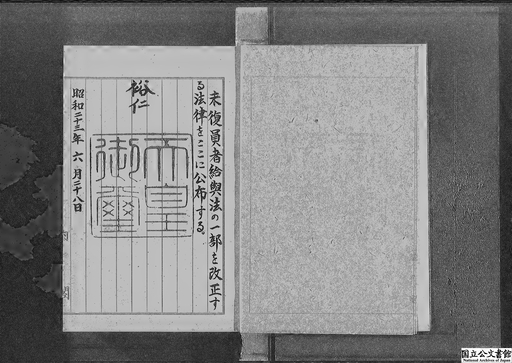 未復員者給與法の一部を改正す
る法律をここに公布する。
裕仁
天皇
御璽
昭和二十三年六月二十八日
国立公文書館
National Archives of Japan